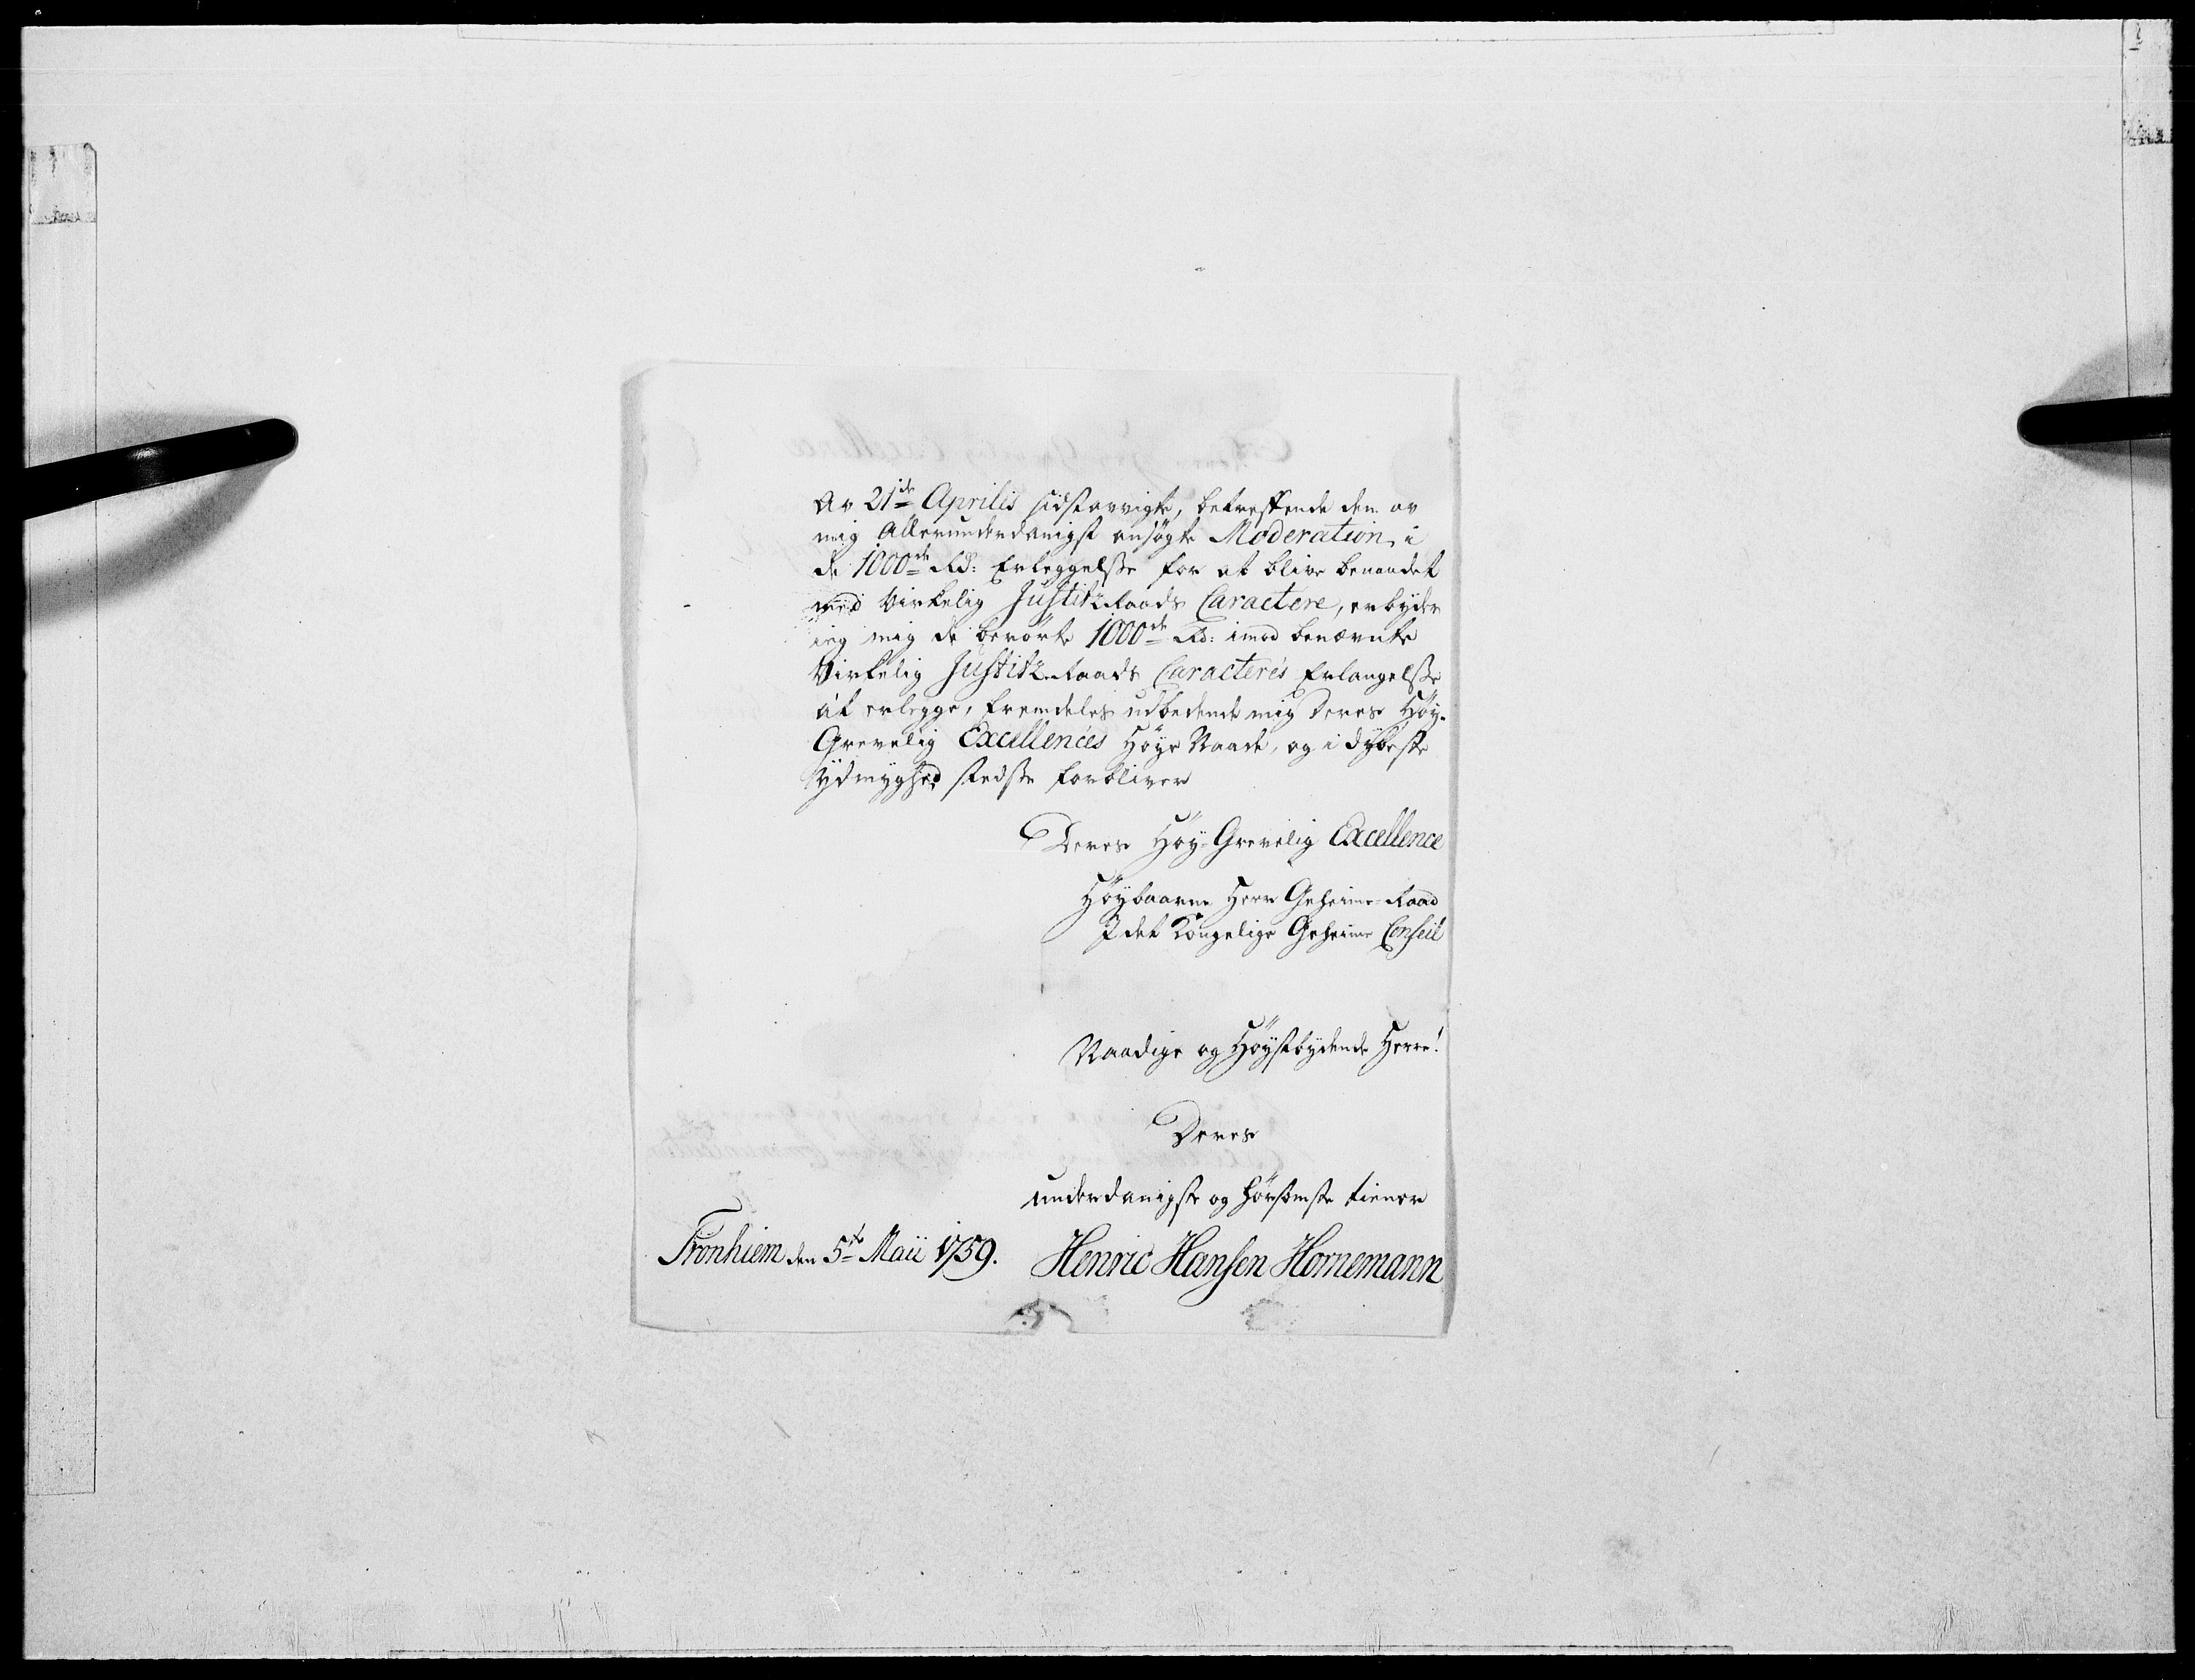 av 21de Aprilis sidstavvigte, betreffende den av
mig Allerunderdanigst ansøgte Moderation, i
de 1000de Rd: Erleggelsse for at blive benaadet
med Virkelig Justitz Raads Caractere, erbyder
ieg mig de berørte 1000de Rd: imod benævnte
Virkelig Justitz-Raads Caracteres Erlangelsse
at erlegge, fremdeles udbedende mig Deres Høy-
Grevelig Excellences Høye Naade, og i dybeste
Ydmyghed stedsse forbliver
Deres Høy-Grevelig Excellence
Høybaarne Herr Geheime-Raad
I det Kongelige Geheime Conseil
Naadige og Høystbydende Herre!
Deres
underdanigste og hørsomste tiener
Tronhiem den 5te Maii 1759. Henric Hansen Hornemann